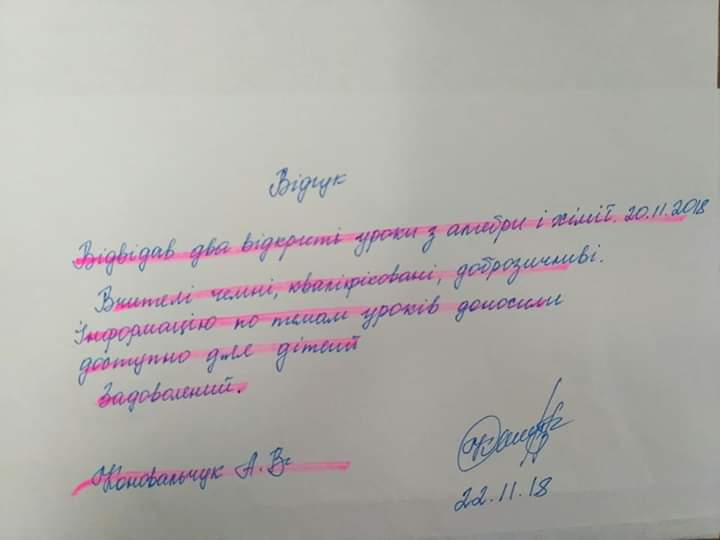 Відгук
Відвідав два відкриті уроки з алгебри і хімії. 20.11.2018
Вчителі чемні, кваліфіковані, доброзичливі.
Інформацію по темам уроків доносили
доступно для дітей
Задоволений.
Коновальчук А. В.
22.11.18